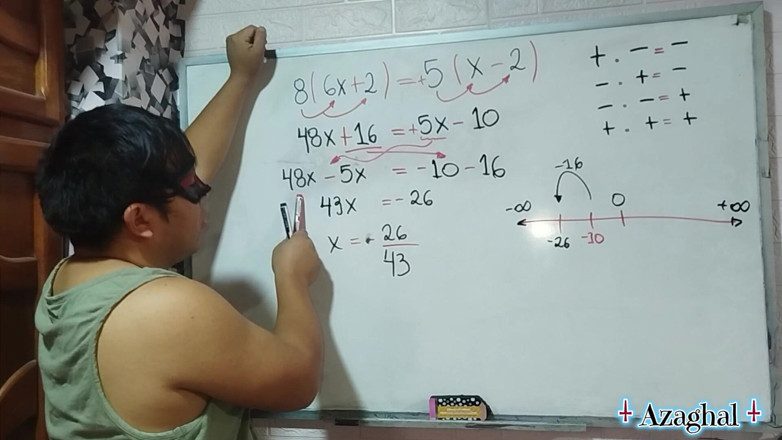 8(6x+2)=+5(x-2)
48x+16 =+5x-10
48x-5x = -10-16
43x = -26
x = - 26
43
+ . - = -
- . + = -
- . - = +
+ . + = +
-16
-∞ 0 +∞
-26 -10
Azaghal